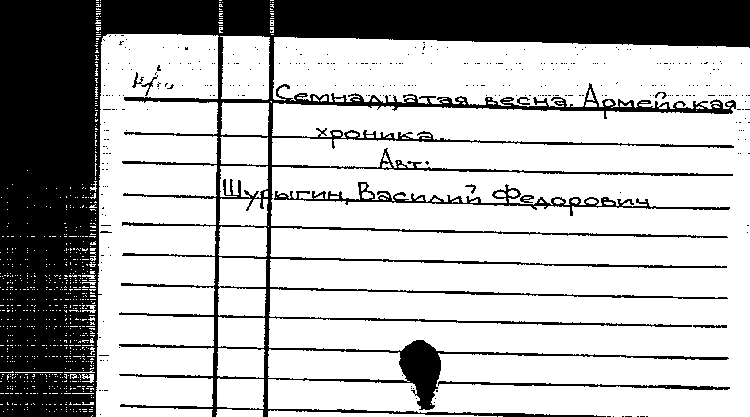 Семнадцатая весна. Армейская
хроника.
Авт:
Шурыгин, Василий Федорович